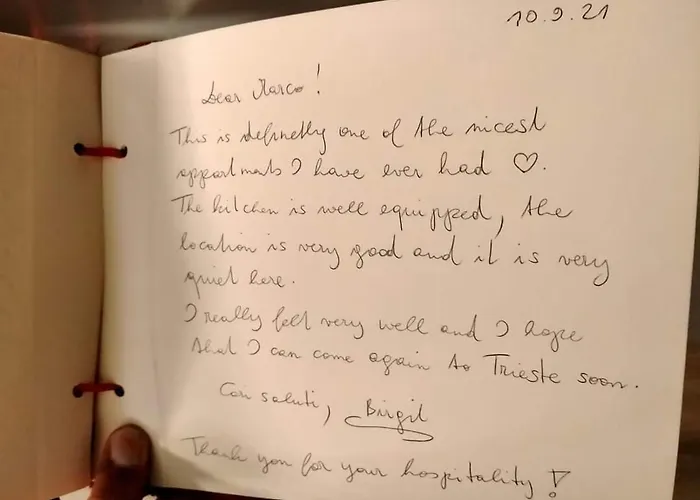 10.9.21
Dear Marco!
This is definetly one of the nicest
appartments I have ever had ♡.
The kitchen is well equipped, the
location is very good and it is very
quiet here.
I really felt very well and I hope
that I can come again to Trieste soon.
Con saluti, Birgit
Thank you for your hospitality!